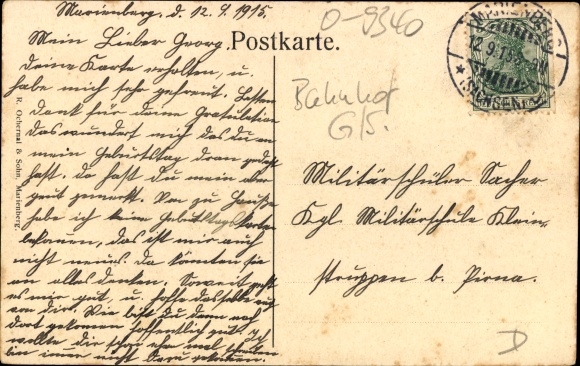 Marienberg, d. 12.9.1915.
Mein Lieber Georg.
Deine Karte erhalten, u.
habe mich sehr gefreut. Besten
Dank für deine Gratulation
Das wundert mich das du an
mein Geburtstag dran gedacht
hast. Da hast Du mein aber
gut gemerkt. Von zu Hause
habe ich keine Geburtstagskarten
bekommen, das ist mir auch
nicht neues. Da könnten sie
an alles denken. Soweit geht
es mir gut, u. hoffe dasselbe auch
von dir. Wie bist du denn noch
dort gekommen hoffentlich gut. Ich
wollte dir schon eher mal schreiben
bin immer nicht dazu gekommen.
Postkarte.
R. Ochernal & Sohn, Marienberg.
O-9340
Bahnhof
G/S.
MARIENBERG
12.9.15
(SACHSEN)
Militärschüler Sacher
Kgl. Militärschule Klein-
struppen b. Pirna.
D